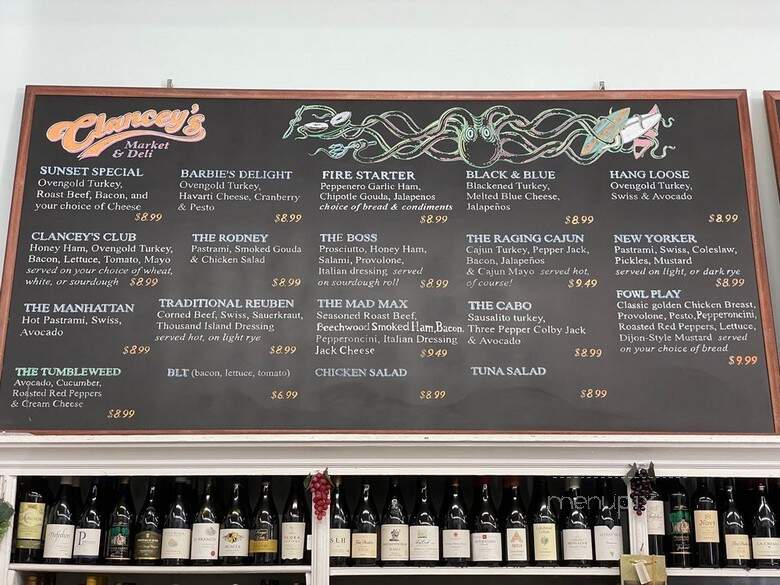 Clancey's
Market
& Deli
SUNSET SPECIAL
Ovengold Turkey,
Roast Beef, Bacon, and
your choice of Cheese
$8.99
BARBIE'S DELIGHT
Ovengold Turkey,
Havarti Cheese, Cranberry
& Pesto
$8.99
FIRE STARTER
Peppenero Garlic Ham,
Chipotle Gouda, Jalapenos
choice of bread & condiments
$8.99
BLACK & BLUE
Blackened Turkey,
Melted Blue Cheese,
Jalapeños
$8.99
HANG LOOSE
Ovengold Turkey,
Swiss & Avocado
$8.99
CLANCEY'S CLUB
Honey Ham, Ovengold Turkey,
Bacon, Lettuce, Tomato, Mayo
served on your choice of wheat,
white, or sourdough $8.99
THE RODNEY
Pastrami, Smoked Gouda
& Chicken Salad
$8.99
THE BOSS
Prosciutto, Honey Ham,
Salami, Provolone,
Italian dressing served
on sourdough roll $8.99
THE RAGING CAJUN
Cajun Turkey, Pepper Jack,
Bacon, Jalapeños
& Cajun Mayo served hot,
of course! $9.49
NEW YORKER
Pastrami, Swiss, Coleslaw,
Pickles, Mustard
served on light, or dark rye
$8.99
THE MANHATTAN
Hot Pastrami, Swiss,
Avocado
$8.99
TRADITIONAL REUBEN
Corned Beef, Swiss, Sauerkraut,
Thousand Island Dressing
served hot, on light rye
$8.99
THE MAD MAX
Seasoned Roast Beef,
Beechwood Smoked Ham, Bacon,
Pepperoncini, Italian Dressing
Jack Cheese
$9.49
THE CABO
Sausalito turkey,
Three Pepper Colby Jack
& Avocado
$8.99
FOWL PLAY
Classic golden Chicken Breast,
Provolone, Pesto, Pepperoncini,
Roasted Red Peppers, Lettuce,
Dijon-Style Mustard served
on your choice of bread
$9.99
THE TUMBLEWEED
Avocado, Cucumber,
Roasted Red Peppers
& Cream Cheese
$8.99
BLT (bacon, lettuce, tomato)
$6.99
CHICKEN SALAD
$8.99
TUNA SALAD
$8.99
menupix